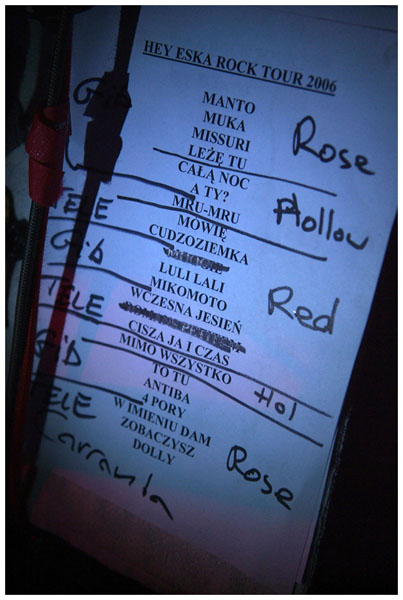 HEY ESKA ROCK TOUR 2006
Gib
MANTO
MUKA
MISSURI
Rose
LEŻĘ TU
CAŁĄ NOC
A TY?
MRU-MRU
Hollow
TELE
MÓWIĘ
CUDZOZIEMKA
Gib
LULI LALI
MIKOMOTO
Red
TELE
WCZESNA JESIEŃ
CISZA JA I CZAS
Gib
MIMO WSZYSTKO
TO TU
Hol
ANTIBA
TELE
4 PORY
W IMIENIU DAM
ZOBACZYSZ
Rose
DOLLY